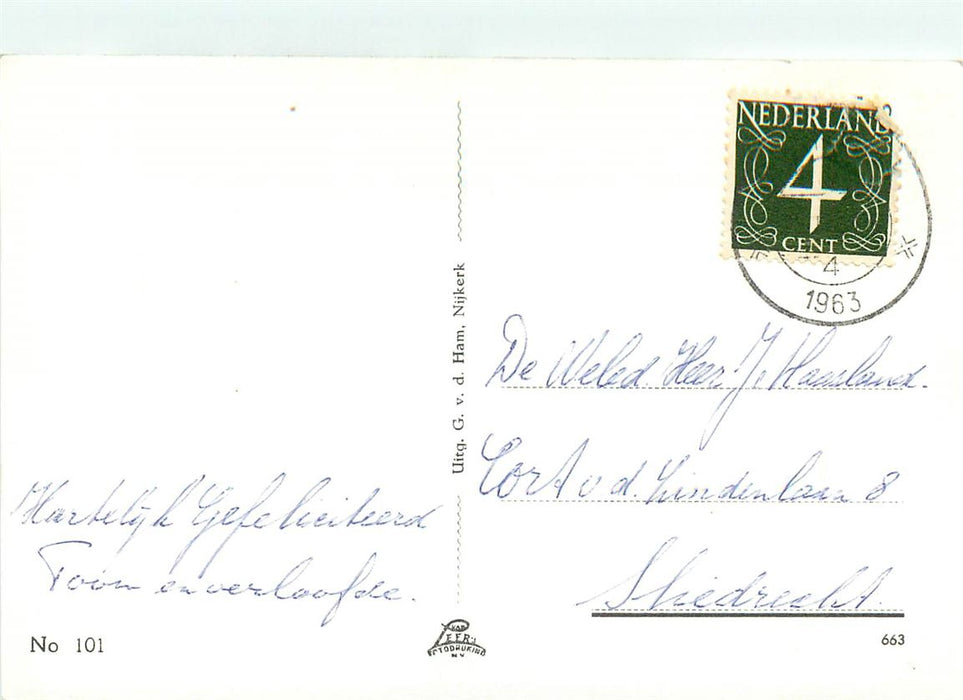 NEDERLAND
4
CENT
4
1963
Uitg. G. v. d. Ham, Nijkerk
De Weled. Heer J. Haarland.
Cort v d. Lindenlaan 8
Sliedrecht.
Hartelijk Gefeliciteerd
Toon en verloofde.
No 101
VAN
LEER'S
FOTODRUKIND
N.V.
663